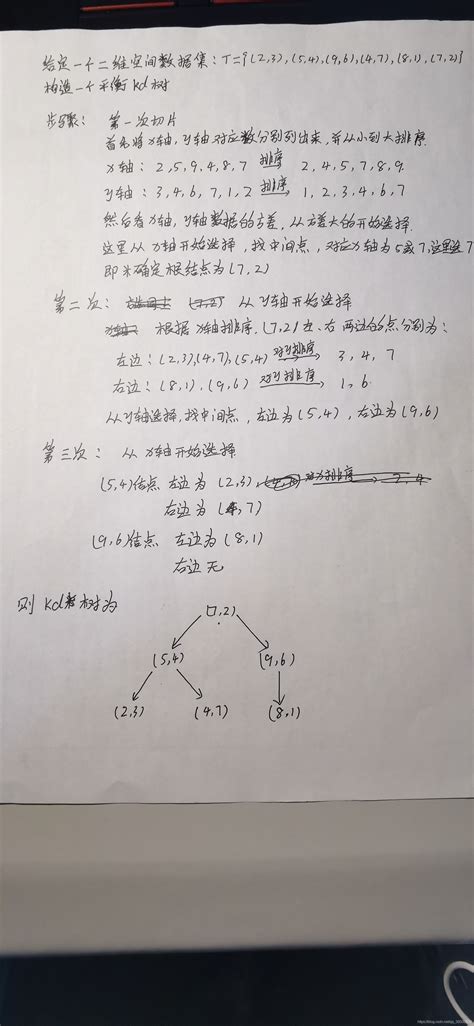 给定一个二维空间数据集：T={(2,3),(5,4),(9,6),(4,7),(8,1),(7,2)}
构造一个平衡kd树
步骤：第一次切片
首先将x轴，y轴对应数分别列出来，并从小到大排序.
x轴：2,5,9,4,8,7 排序 2,4,5,7,8,9.
y轴：3,4,6,7,1,2 排序 1,2,3,4,6,7
然后看x轴，y轴数据的方差，从方差大的开始选择.
这里从x轴开始选择，找中间点，对应x轴为5或7，这里选7
即来确定根结点为(7,2)
第二次：从y轴开始选择
根据x轴排序，(7,2)左、右两边的点分别为：
左边：(2,3),(4,7),(5,4) 对y排序 3,4,7
右边：(8,1),(9,6) 对y排序 1,6
从y轴选择，找中间点，左边为(5,4)，右边为(9,6)
第三次：从x轴开始选择
(5,4)结点 左边为(2,3)，对x排序 2,4
右边为(4,7)
(9,6)结点 左边为(8,1)
右边无
则kd树为
(7,2)
(5,4) (9,6)
(2,3) (4,7) (8,1)